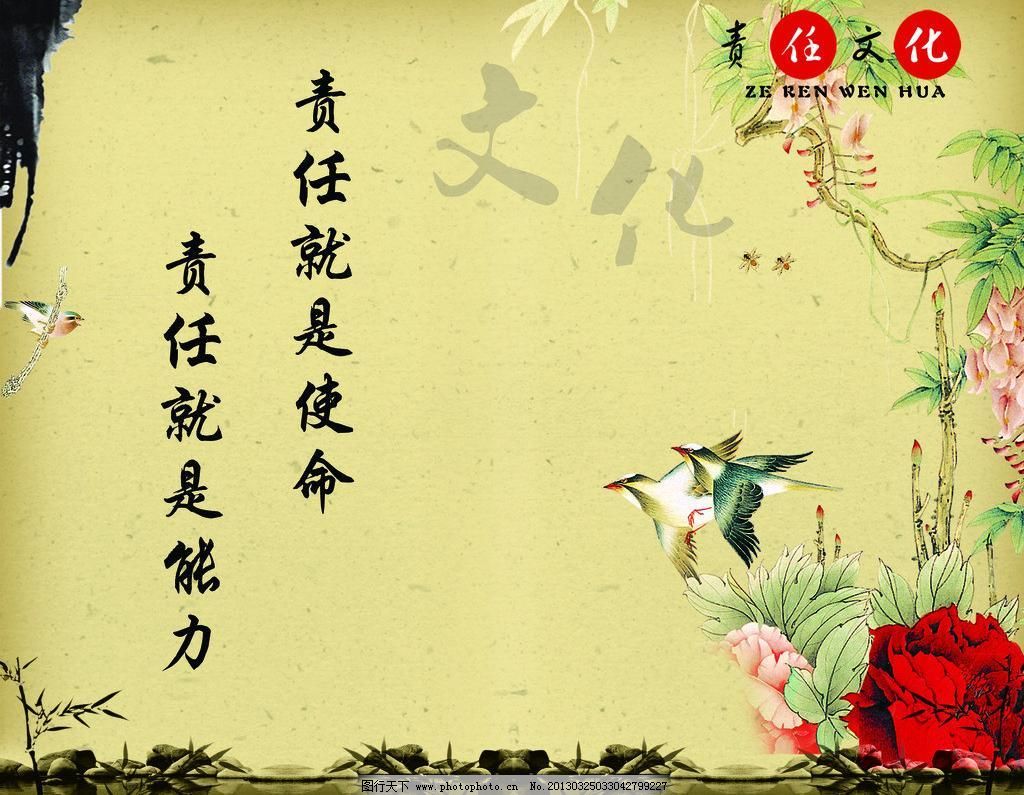 责任文化
ZE REN WEN HUA
文化
责任就是使命
责任就是能力
图行天下 www.photophoto.cn No.20130325033042799227